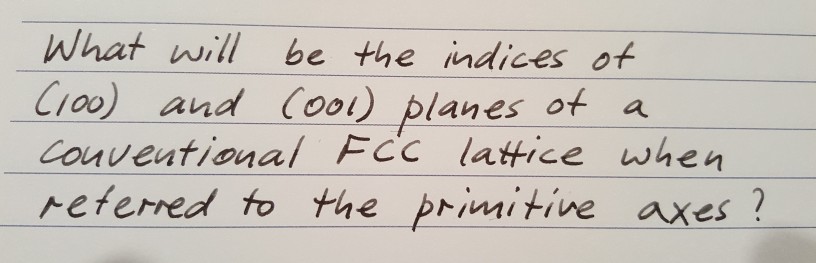 What will be the indices of
(100) and (001) planes of a
conventional FCC lattice when
referred to the primitive axes?